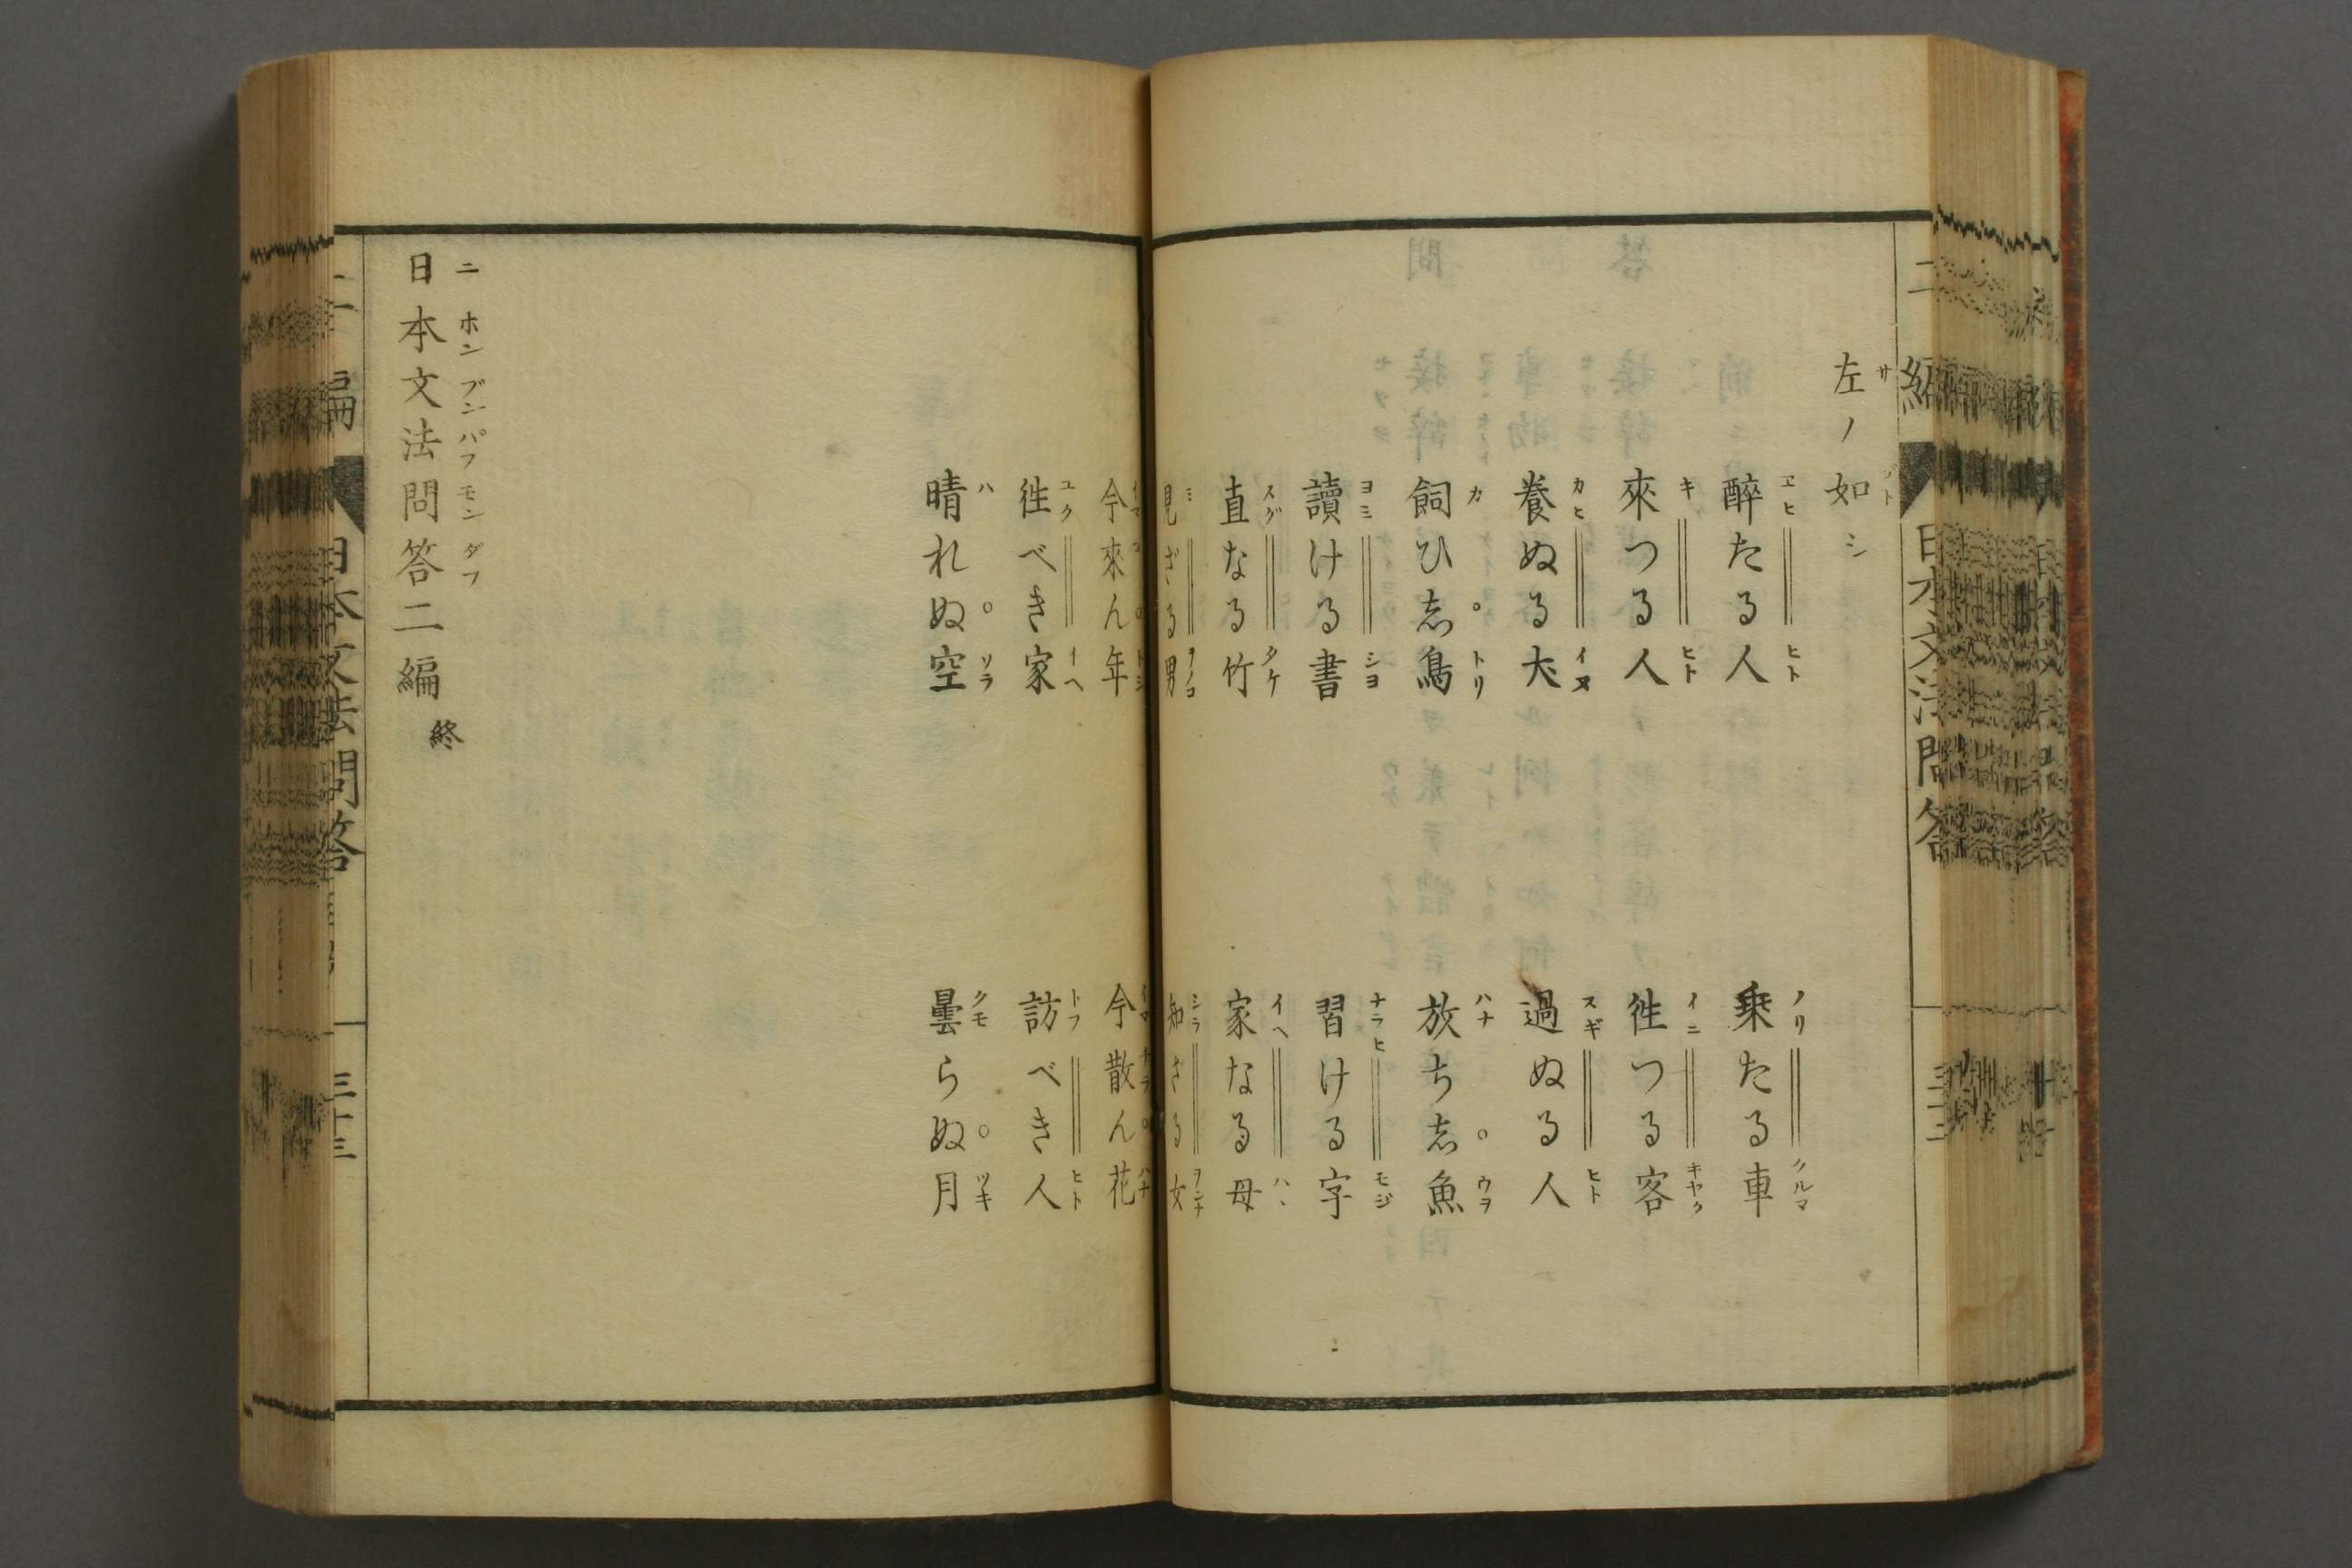 左ノ如シ
醉たる人
乗たる車
來つる人
徃つる客
養ぬる犬
過ぬる人
飼ひ志鳥
放ち志魚
讀ける書
習ける字
直なる竹
家なる母
見ざる男
知ざる女
今來ん年
今散ん花
徃べき家
訪べき人
晴れぬ空
曇らぬ月
日本文法問答二編終
二編
日本文法問答
三十三